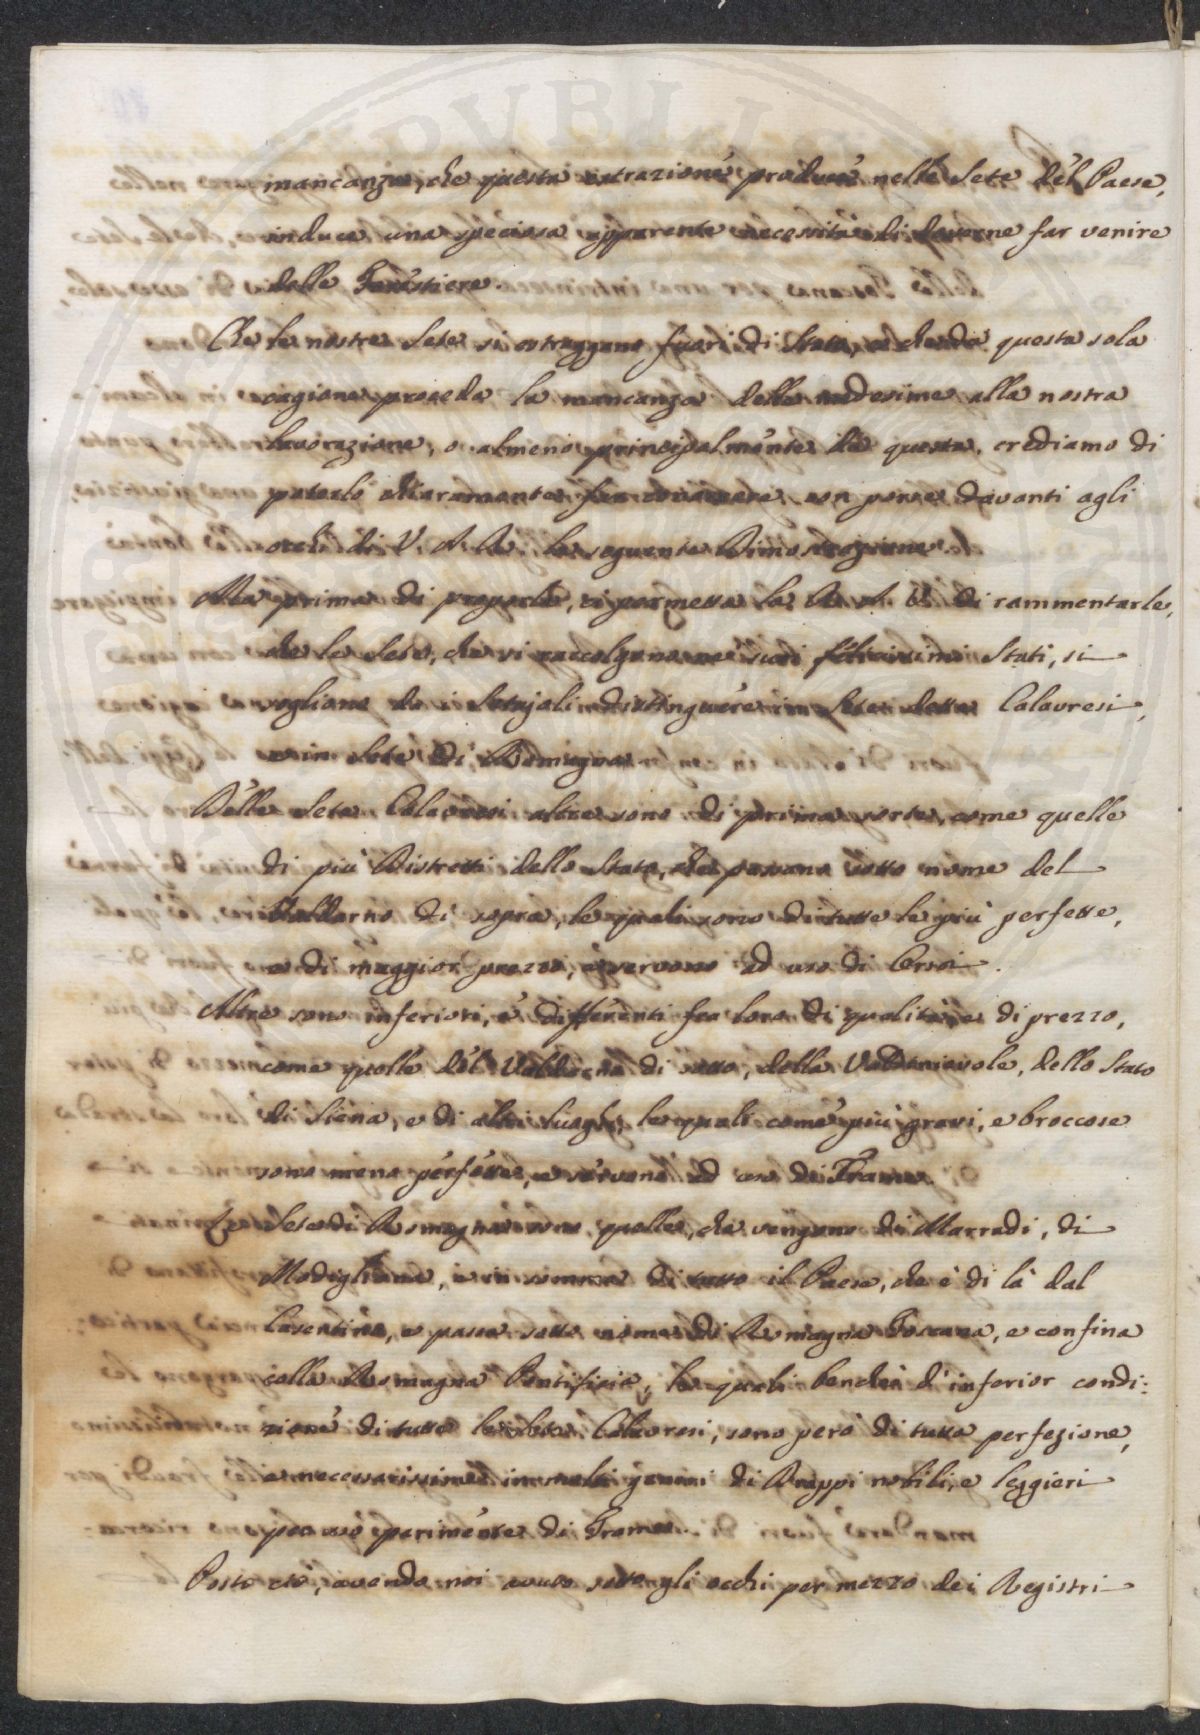 mancanza, che questa estrazione produce nelle Sete del Paese,
induce una speciosa apparente necessità di doverne far venire
delle Forestiere.
Che le nostre Sete si estraggano fuori di Stato, e che da questa sola
cagione proceda la mancanza delle medesime alla nostra
lavorazione, o almeno principalmente da questa, crediamo di
poterlo chiaramente far conoscere con porre davanti agli
occhi di V. A. R. la seguente Dimostrazione.
Ma prima di proporla, ci permetta la R. A. V. di rammentarle,
che le Sete, che si raccolgono ne' suoi felicissimi Stati, si
vogliono da i Setajoli distinguere in Sete dette Calavresi,
e in Sete di Romagna.
Delle Sete Calavresi altre sono di prima sorte, come quelle
di più Distretti dello Stato, che passano sotto nome del
Valdarno di sopra, le quali sono di tutte le più perfette,
e di maggior prezzo, e servono ad uso di Orsoi.
Altre sono inferiori, e differenti fra loro di qualità, e di prezzo,
come quelle del Valdarno di sotto, della Valdinievole, dello Stato
di Siena, e di altri luoghi, le quali come più gravi, e broccose
sono meno perfette, e servono ad uso di Trame.
Le Sete di Romagna sono quelle, che vengono di Marradi, di
Modigliana, e in somma di tutto il Paese, che è di là dal
Casentino, e passa sotto nome di Romagna Toscana, e confina
colla Romagna Pontificia, le quali benchè d'inferior condi:
zione di tutte le Sete Calavresi, sono però di tutta perfezione,
e necessarissime in molti generi di Drappi nobili, e leggieri
per uso parimente di Trame.
Posto ciò, avendo noi avuto sotto gli occhi per mezzo dei Registri